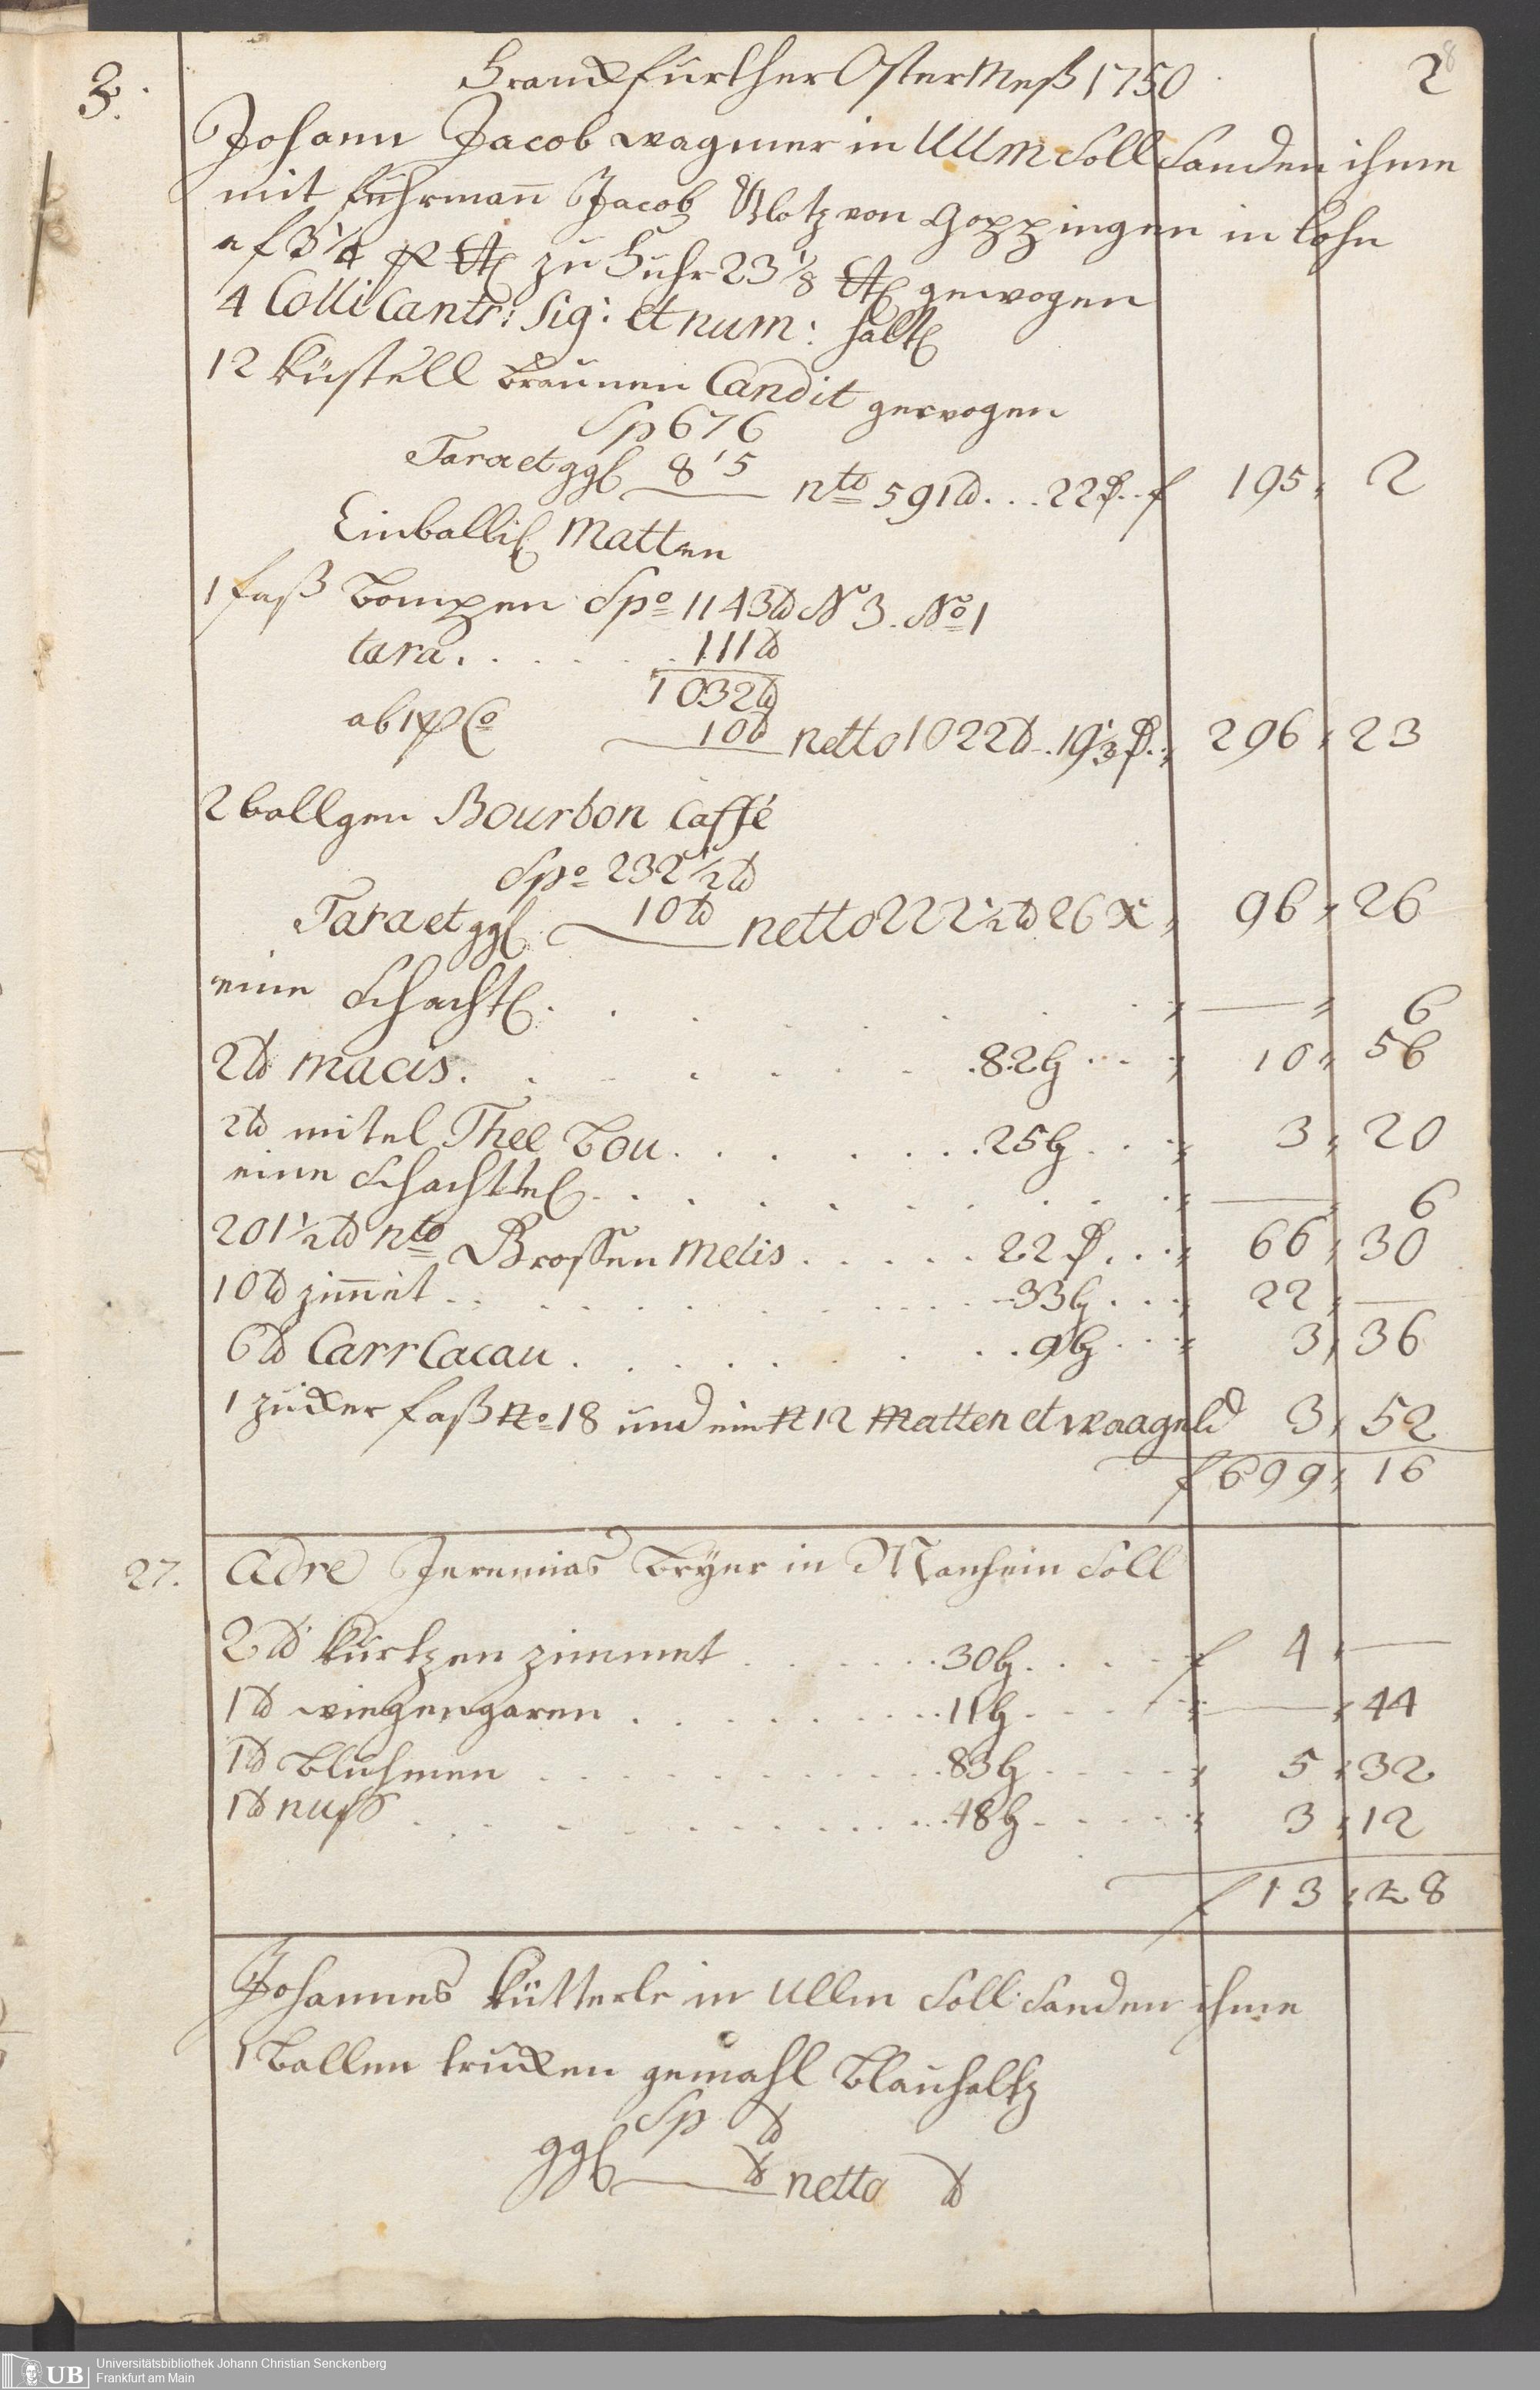 Franckfurther Oster Mess 1750 2 8
3.
Johann Jacob wagner in Ullm soll sanden ihme
mit fuhrmann Jacob Klotz von Goppingen in Lohn
a f 3 1/4 p Ct zu Fuhr 23 1/8 Ct gewogen
4 Colli Cantr: Sig: et num: halt
12 küstell braunen Candit gewogen
Sp 676
Tara et ggl 85 nto 591 lb . . . 22 . . f 195 " 2
Einballi Matten
1 faß Bompen Spo 1143 lb No 3. No 1
tara . . . . . 111 lb
1032 lb
ab 1 p Co 10 lb netto 1022 lb . 19 1/3 . " 296 " 23
2 ballgen Bourbon Caffé
Spo 232 1/2 lb
Tara et ggl 10 lb netto 222 1/2 lb 26 x " 96 " 26
eine Schachtl . . . . . . " — " 6
2 lb macis . . . . . . 82 b . . . " 10 " 56
2 lb mitel Thee Bou . . . . . 25 b . . " 3 " 20
eine Schachttel . . . . . . " — " 6
201 1/2 lb nto Grossen Melis . . . . . 22 . . " 66 " 30
10 lb zimmet . . . . . . 33 b . . . " 22 " —
6 lb Carr Cacau . . . . . . 9 b . . " 3 " 36
1 zucker faß No 18 und ein N 12 Matten et waageld 3 " 52
f 699 " 16
27. Adre Jeremias Beyer in Manheim soll
2 lb kurtzen zimmet . . . . . . 30 b . . . . f 4 " —
1 lb wiegengaren . . . . . . 11 b . . . " — " 44
1 lb Bluhmen . . . . . . 83 b . . . . " 5 " 32
1 lb nuss . . . . . . 48 b . . . . " 3 " 12
f 13 " 28
Johannes kütterle in Ullm soll sanden ihme
1 Ballen trucken gemahl Blauholtz
Sp lb
ggl lb netto lb
UB
Universitätsbibliothek Johann Christian Senckenberg
Frankfurt am Main